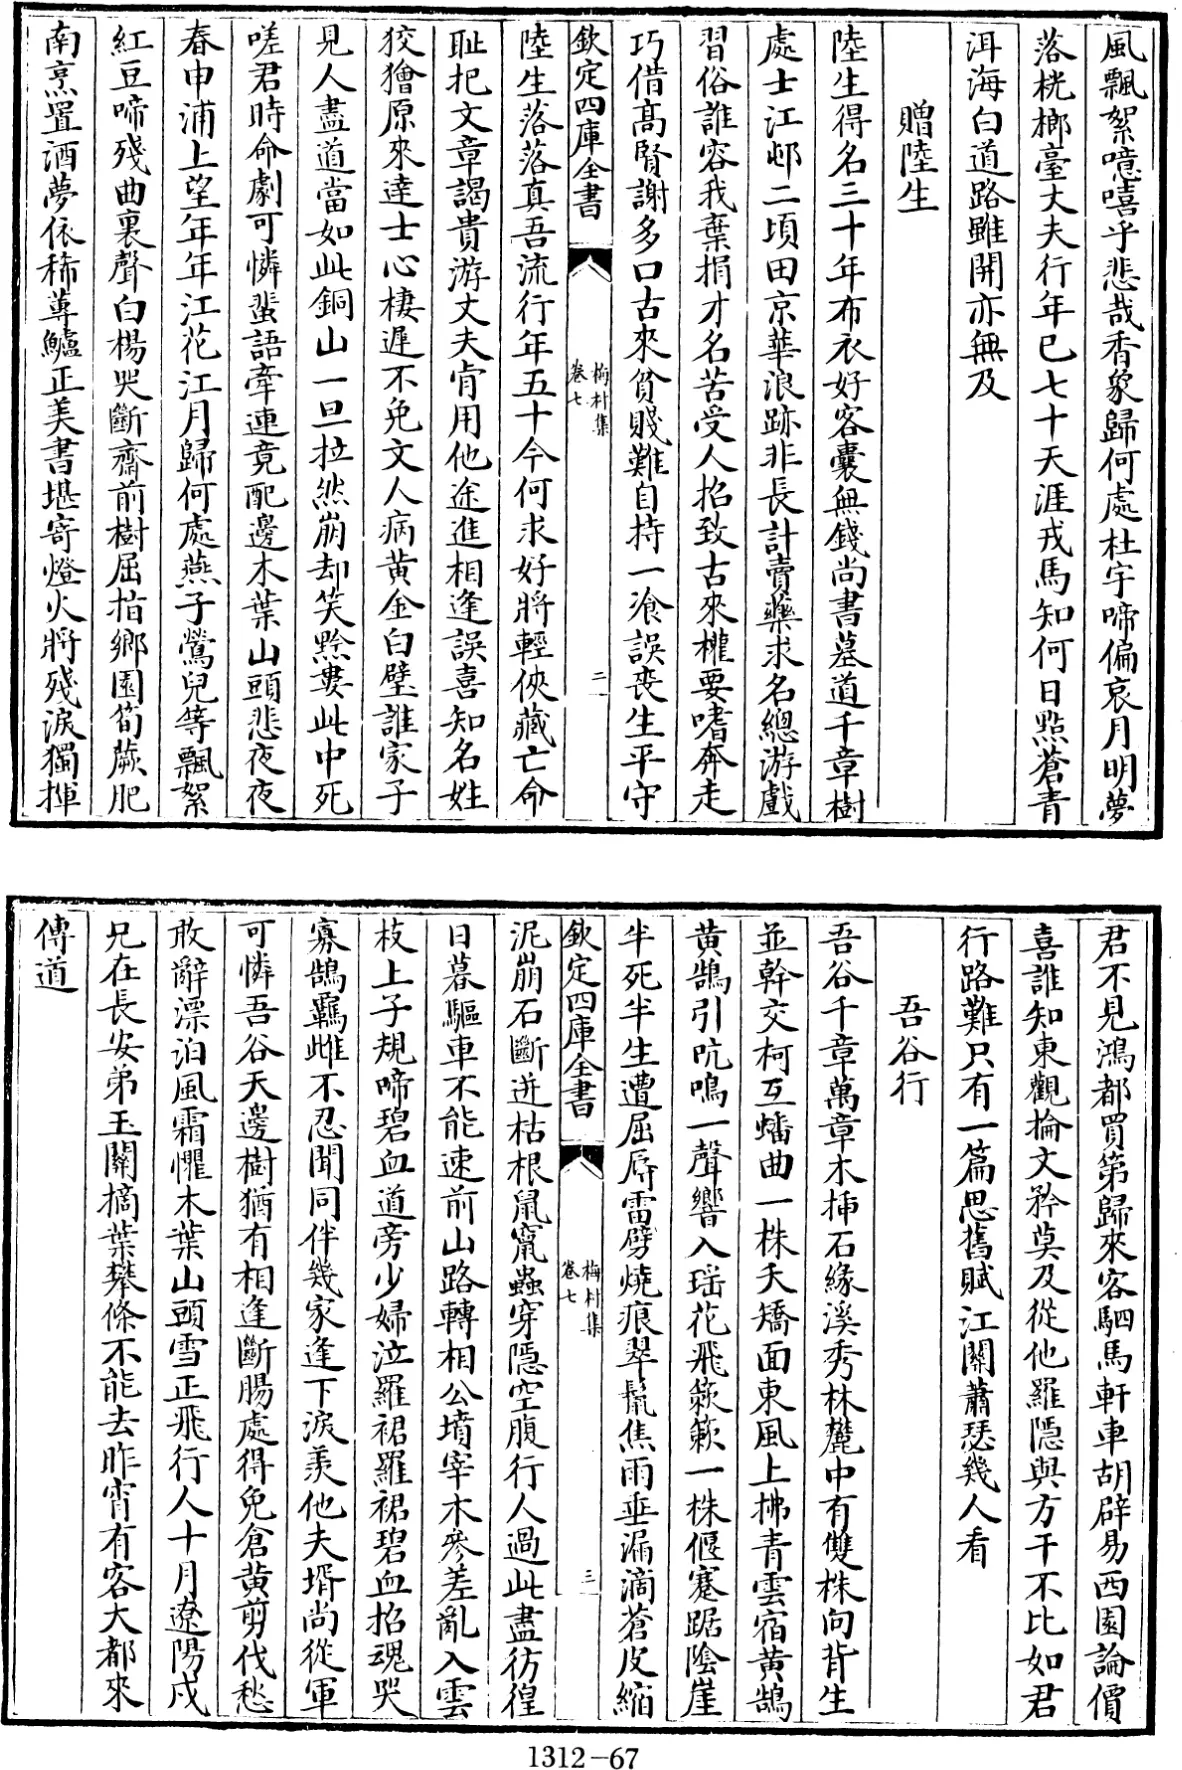 風飄絮噫嘻乎悲哉香象歸何處杜宇啼偏哀月明夢
落桄榔臺丈夫行年已七十天涯戎馬知何日點蒼青
洱海白道路雖開亦無及
贈陸生
陸生得名三十年布衣好客囊無錢尚書墓道千章樹
處士江邨二頃田京華浪跡非長計賣藥求名總游戲
習俗誰容我棄捐才名苦受人招致古來權要嗜奔走
巧借高賢謝多口古來貧賤難自持一飡誤喪生平守
欽定四庫全書
梅村集
卷七
二
陸生落落真吾流行年五十今何求好將輕俠藏亡命
耻把文章謁貴游丈夫肯用他途進相逢誤喜知名姓
狡獪原來達士心棲遲不免文人病黄金白璧誰家子
見人盡道當如此銅山一旦拉然崩却笑黔婁此中死
嗟君時命劇可憐蜚語牽連竟配邊木葉山頭悲夜夜
春申浦上望年年江花江月歸何處燕子鶯兒等飄絮
紅豆啼殘曲裏聲白楊哭斷齋前樹屈指鄉園筍蕨肥
南烹置酒夢依稀蓴鱸正美書堪寄燈火將殘淚獨揮
君不見鴻都買第歸來客駟馬軒車胡辟易西園論價
喜誰知東觀掄文矜莫及從他羅隱與方干不比如君
行路難只有一篇思舊賦江關蕭瑟幾人看
吾谷行
吾谷千章萬章木揷石緣溪秀林麓中有雙株向背生
並幹交柯互蟠曲一株夭矯面東風上拂青雲宿黄鵠
黄鵠引吭鳴一聲響入瑶花飛簌簌一株偃蹇踞陰崖
半死半生遭屈辱雷劈燒痕翠鬛焦雨垂漏滴蒼皮縮
欽定四庫全書
梅村集
卷七
三
泥崩石斷迸枯根鼠竄蟲穿隱空腹行人過此盡彷徨
日暮驅車不能速前山路轉相公墳宰木參差亂入雲
枝上子規啼碧血道旁少婦泣羅裙羅裙碧血招魂哭
寡鵠羈雌不忍聞同伴幾家逢下淚羨他夫壻尚從軍
可憐吾谷天邊樹猶有相逢斷腸處得免倉黄剪伐愁
敢辭漂泊風霜懼木葉山頭雪正飛行人十月遼陽戍
兄在長安弟玉關摘葉攀條不能去昨宵有客大都來
傳道
1312-67